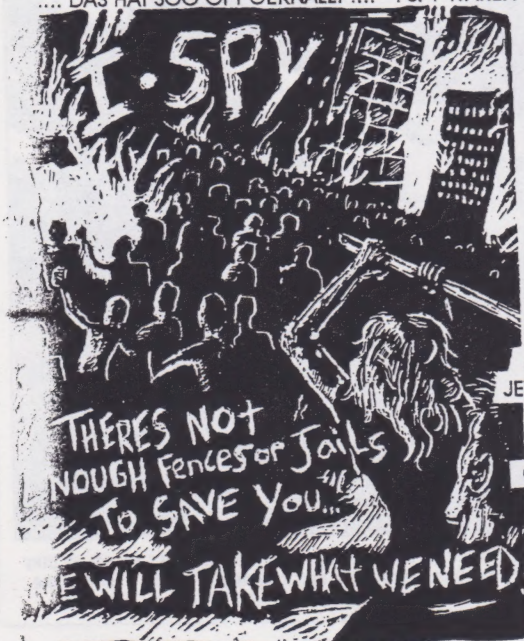 .... DAS HAT SOG OPPOERNALE!
I • SPY
JE
THERES NOT
NOUGH Fences or Jails
To SAVE You...
E WILL TAKE WHAt WE NEED